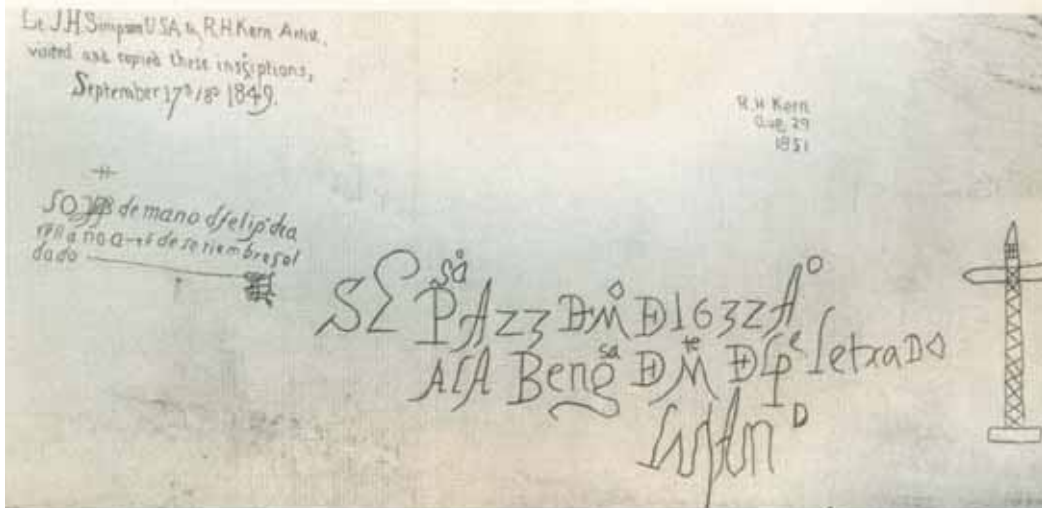 Lt J.H Simpson USA & R.H Kern Artist,
visited and copied these inscriptions,
September 17th 18th 1849.
R.H Kern
Aug 29
1851
de mano d felipe de a
de setiembre sol
dado
SE PsaA 23 DMo D 1632 Ao
ALA Bengsa D Mte D Lpe LetxaDo
Lujan